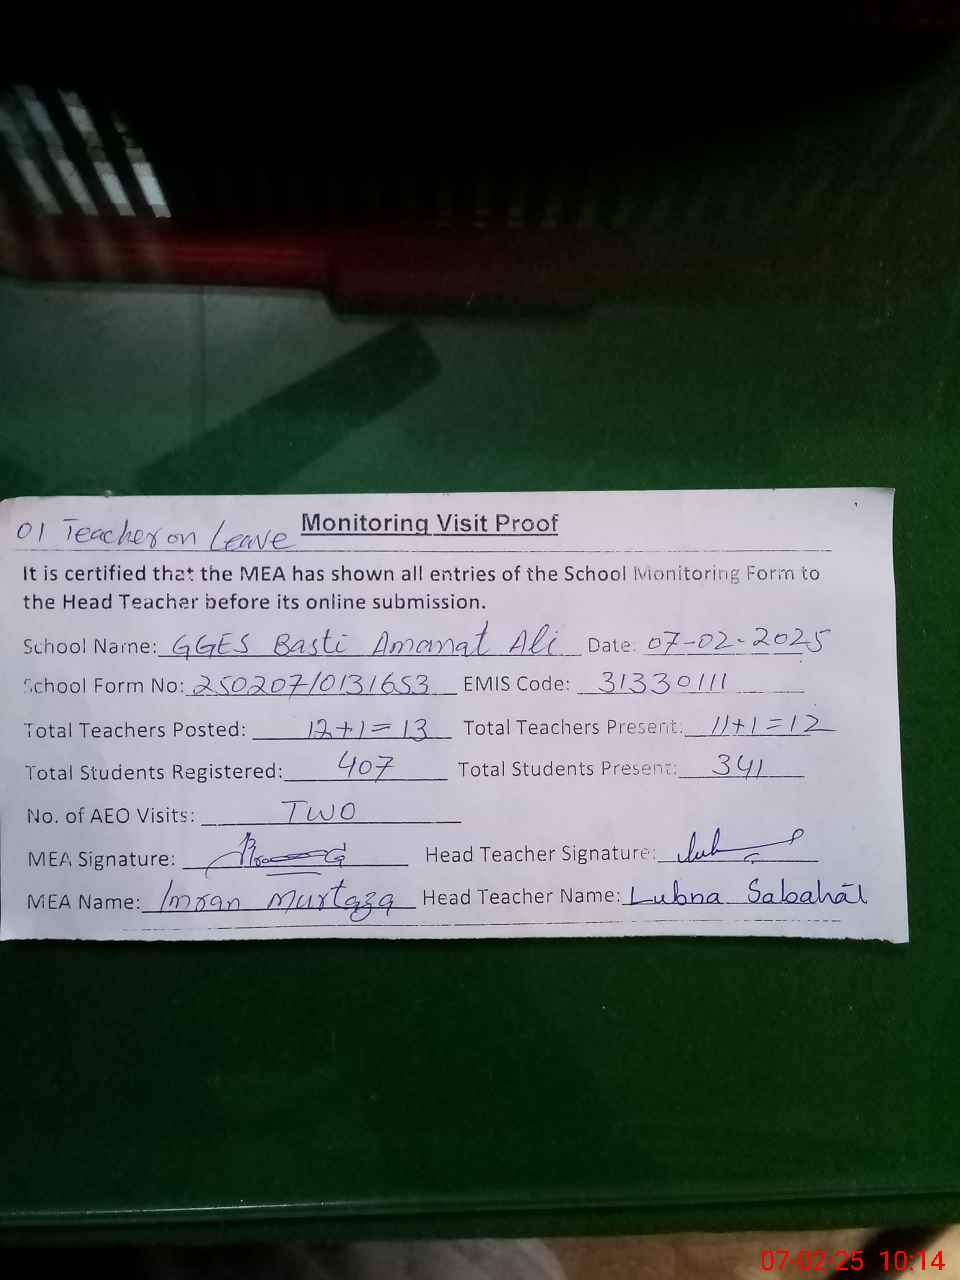 01 Teacher on Leave Monitoring Visit Proof
It is certified that the MEA has shown all entries of the School Monitoring Form to
the Head Teacher before its online submission.
School Name: GGES Basti Amanat Ali Date: 07-02-2025
School Form No: 250207/0131653 EMIS Code: 31330111
Total Teachers Posted: 12+1=13 Total Teachers Present: 11+1=12
Total Students Registered: 407 Total Students Present: 341
No. of AEO Visits: TWO
MEA Signature: Head Teacher Signature:
MEA Name: Imran Murtaza Head Teacher Name: Lubna Sabahat
07-02-25 10:14